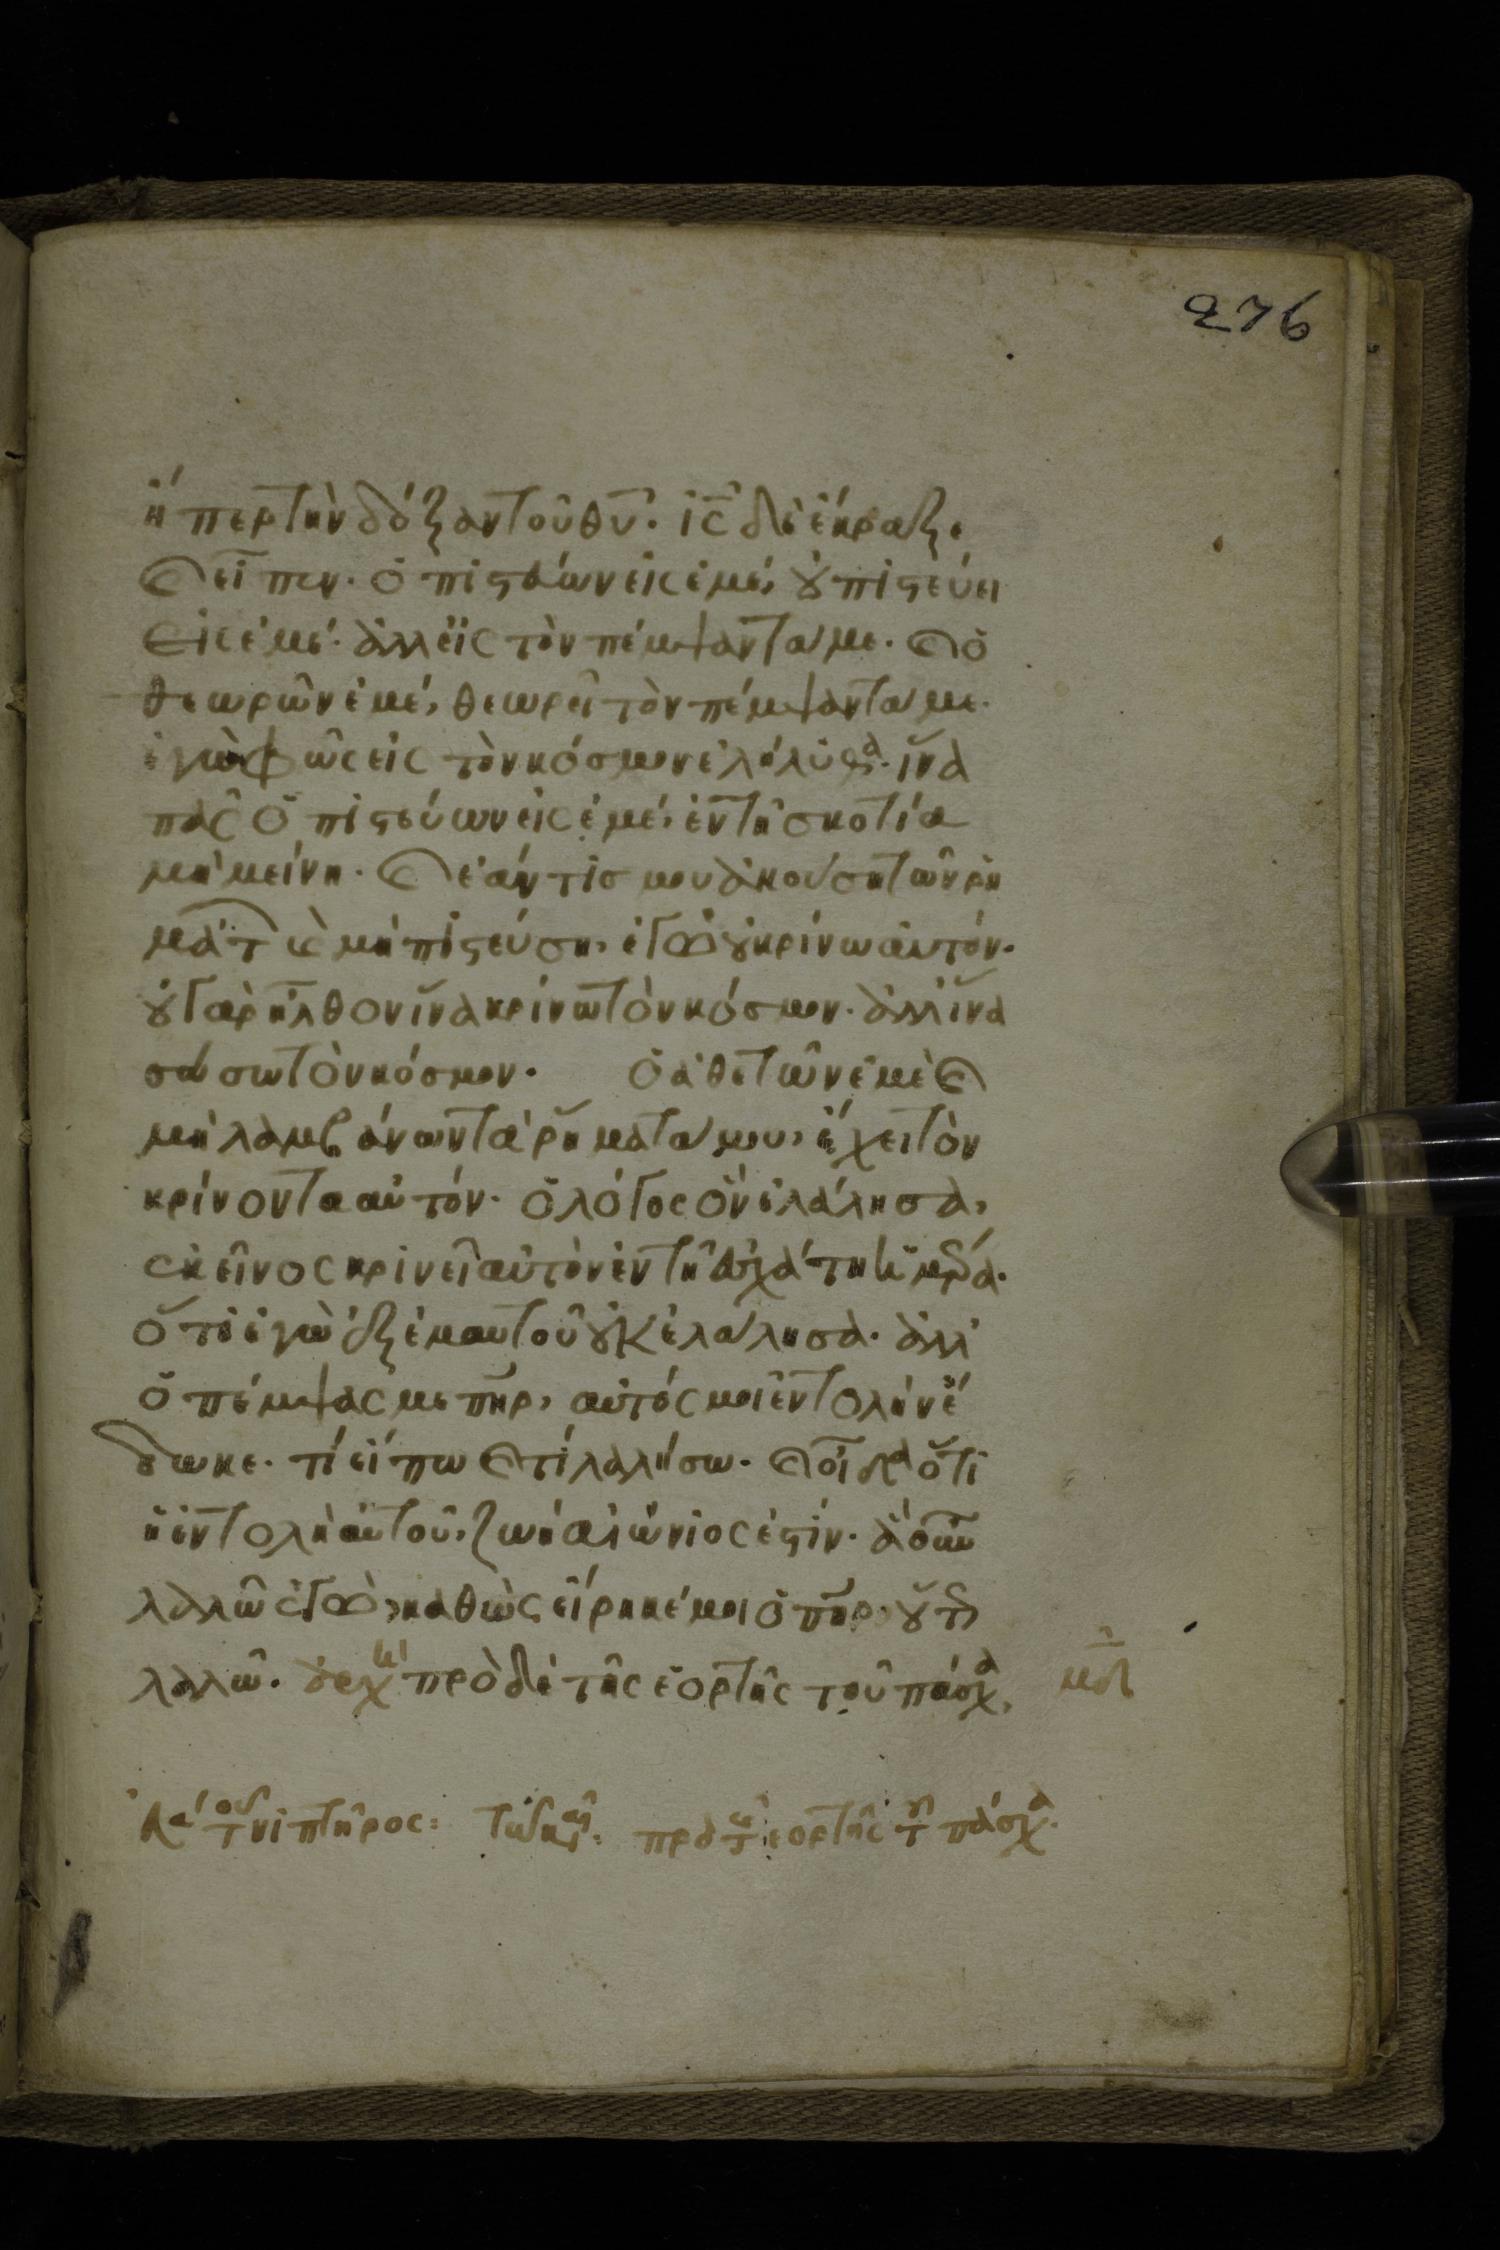 276
ἤπερ τὴν δόξαν τοῦ θυ. ις δὲ ἔκραξε
(καὶ) εἶπεν. ὁ πιστεύων εἰς ἐμέ, οὐ πιστεύει
εἰς ἐμέ. ἀλλ εἰς τὸν πέμψαντα με. (καὶ) ὁ
θεωρῶν ἐμέ, θεωρεῖ τὸν πέμψαντα με.
ἐγὼ φῶς εἰς τὸν κόσμον ἐλήλυθα. ἵνα
πᾶς ὁ πιστεύων εἰς ἐμέ, ἐν τῆ σκοτία
μὴ μείνη. (καὶ) ἐάν τίς μου ἀκούση τῶν ρη
μάτ (καὶ) μὴ πιστεύση, ἐγὼ οὐ κρίνω αὐτόν.
οὐ γὰρ ἦλθον ἵνα κρίνω τὸν κόσμον. ἀλλ ἵνα
σώσω τὸν κόσμον. ὁ ἀθετῶν ἐμὲ (καὶ)
μὴ λαμβάνων τὰ ρήματα μου, ἔχει τὸν
κρίνοντα αὐτόν. ὁ λόγος ὃν ἐλάλησα,
ἐκεῖνος κρινεῖ αὐτὸν ἐν τῆ ἐσχάτη ἡμέρα.
ὅτι ἐγὼ ἐξ ἐμαυτοῦ οὐκ ἐλάλησα. ἀλλ
ὁ πέμψας με πηρ, αὐτός μοι ἐντολὴν ἔ
δωκε. τί εἴπω (καὶ) τί λαλήσω. (καὶ) οἶδα ὅτι
ἡ ἐντολὴ αὐτοῦ, ζωὴ αἰώνιος ἐστίν. ἃ οὖν
λαλῶ ἐγὼ, καθὼς εἴρηκέ μοι ὁ πηρ, οὕτω
λαλῶ. ἀρχ πρὸ δὲ τῆς ἑορτῆς τοῦ πάσχα,
τ νιπτῆρος: τω κ: πρὸ τ ἑορτῆς τ πάσχα.